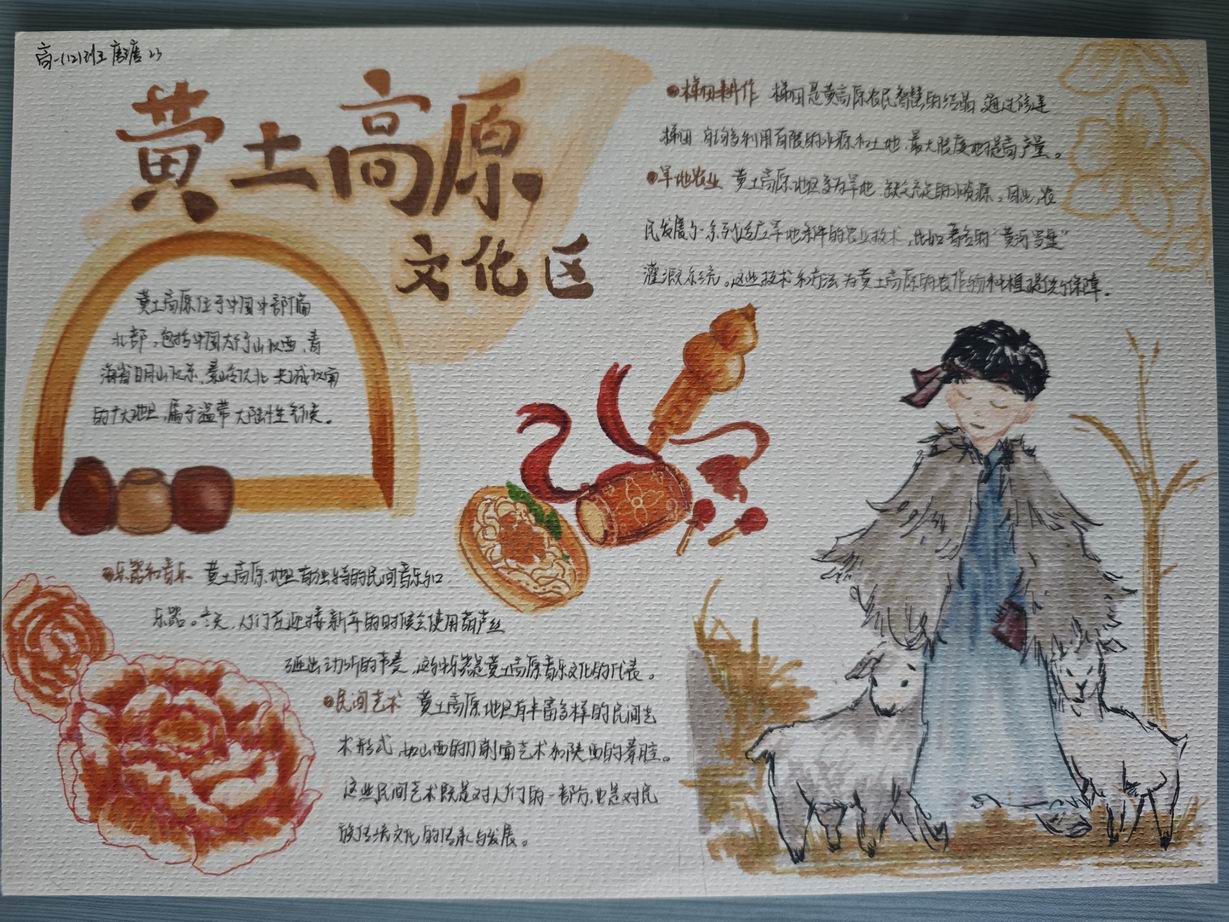 高一(12)班 23
黄土高原
文化区
黄土高原位于中国中部偏
北部，包括中国太行山以西，青
海省日月山以东，秦岭以北 长城以南
的广大地区，属于温带大陆性气候。
●梯田耕作 梯田是黄高原农民智慧的结晶 通过修建
梯田 能够利用有限的水源和土地，最大限度地提高产量。
●旱地农业 黄土高原地区多为旱地 缺乏充足的水资源。因此，农
民发展了一系列适应旱地条件的农业技术，比如著名的“黄河
灌溉系统。这些技术和方法为黄土高原的农作物种植提供了保障。
●乐器和音乐 黄土高原地区有独特的民间音乐和
乐器。 人们在迎接新年的时候会使用葫芦丝
动听的 这 乐器是黄土高原音乐文化的代表。
●民间艺术 黄土高原地区有丰富多样的民间艺
术形式 如山西的刀削面艺术和陕西的秦腔。
这些民间艺术既是对人们的一部分，也是对民
族传统文化的传承与发展。